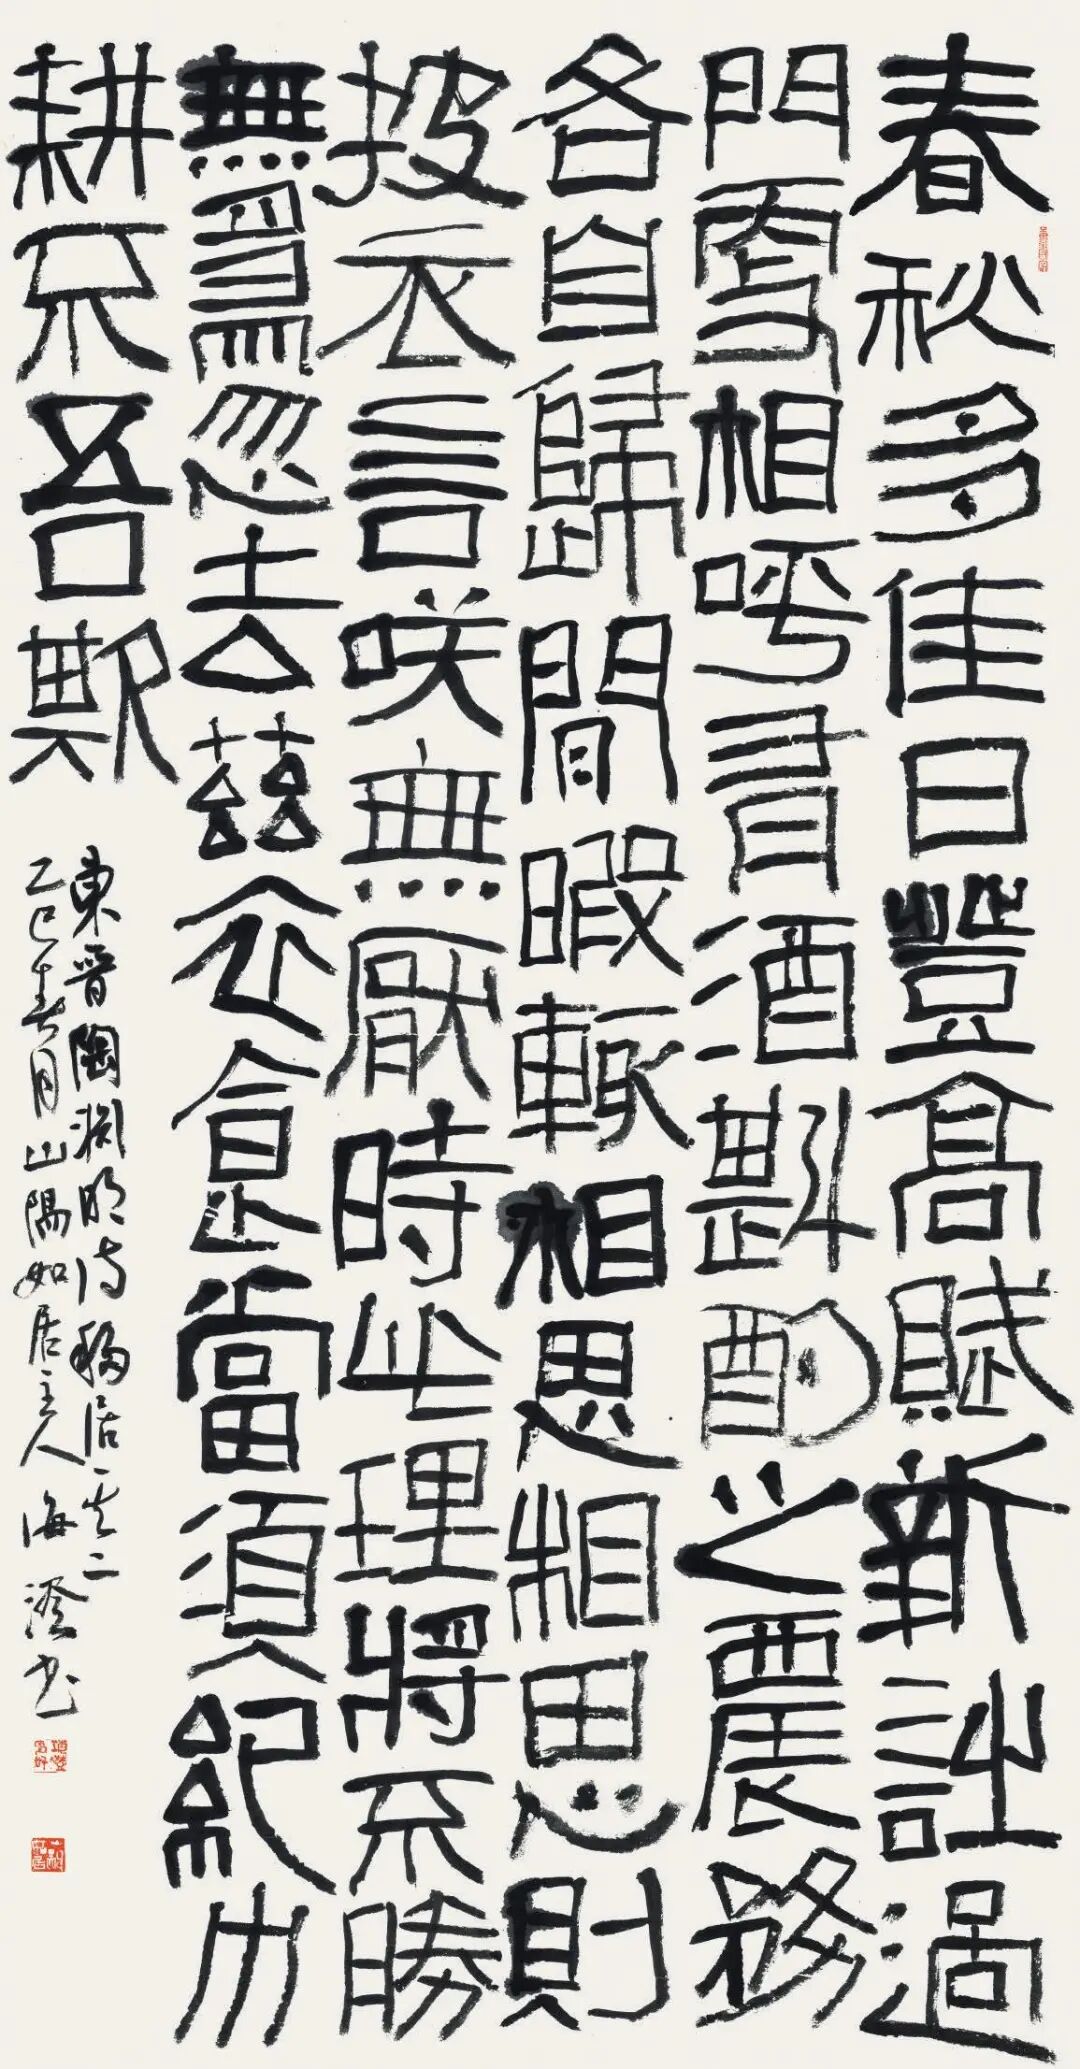 春秋多佳日登高賦新詩過
門更相呼有酒斟酌之農務
各自歸閒暇輒相思相思則
披衣言咲無厭時此理將不勝
無爲忽去茲衣食當須紀力
耕不吾欺
東晋陶淵明詩移居其二
乙巳春月山隅如居主人海澄书